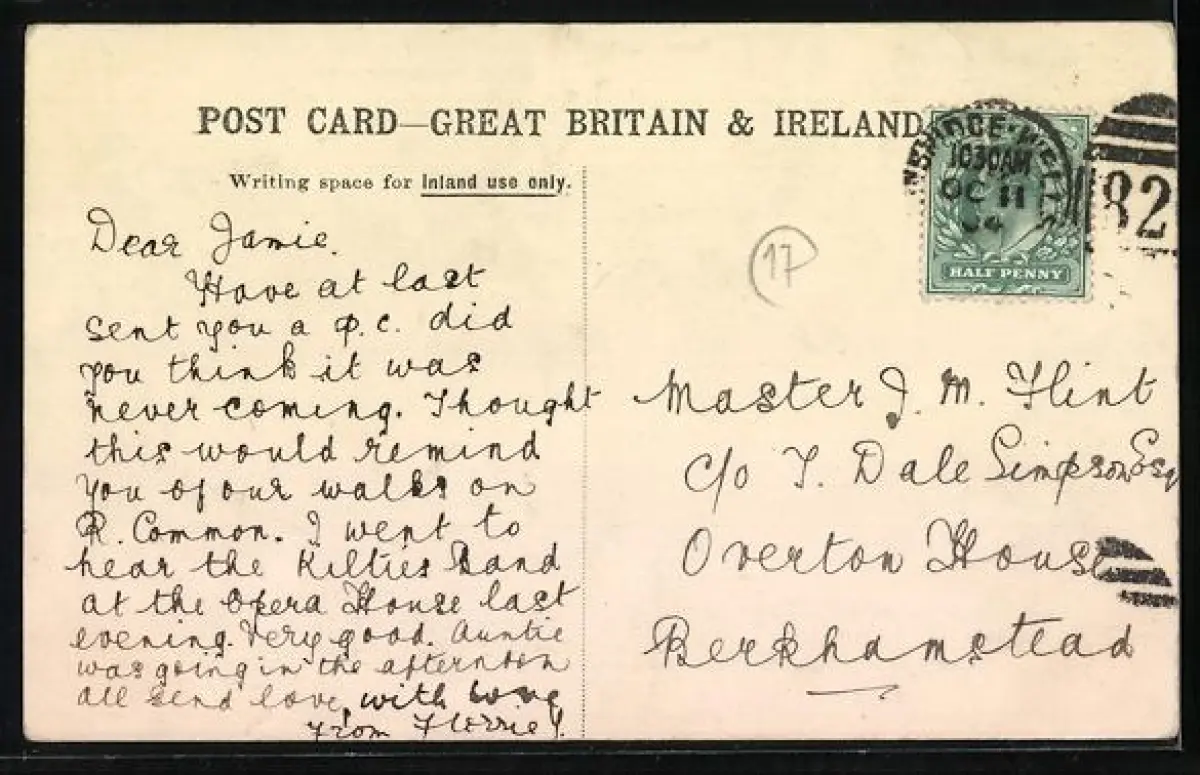 POST CARD—GREAT BRITAIN & IRELAND
Writing space for Inland use only.
NBRIDGE·WELLS
1030AM
OC 11
04
HALF PENNY
82
17
Dear Jamie.
Have at last
sent you a p.c. did
you think it was
never coming. Thought
this would remind
you of our walks on
R. Common. I went to
hear the Kilties Band
at the Opera House last
evening. Very good. Auntie
was going in the afternoon
all send love, with love
from Florrie
Master J. M. Flint
c/o T. Dale Simpson Esq
Overton House
Berkhamstead